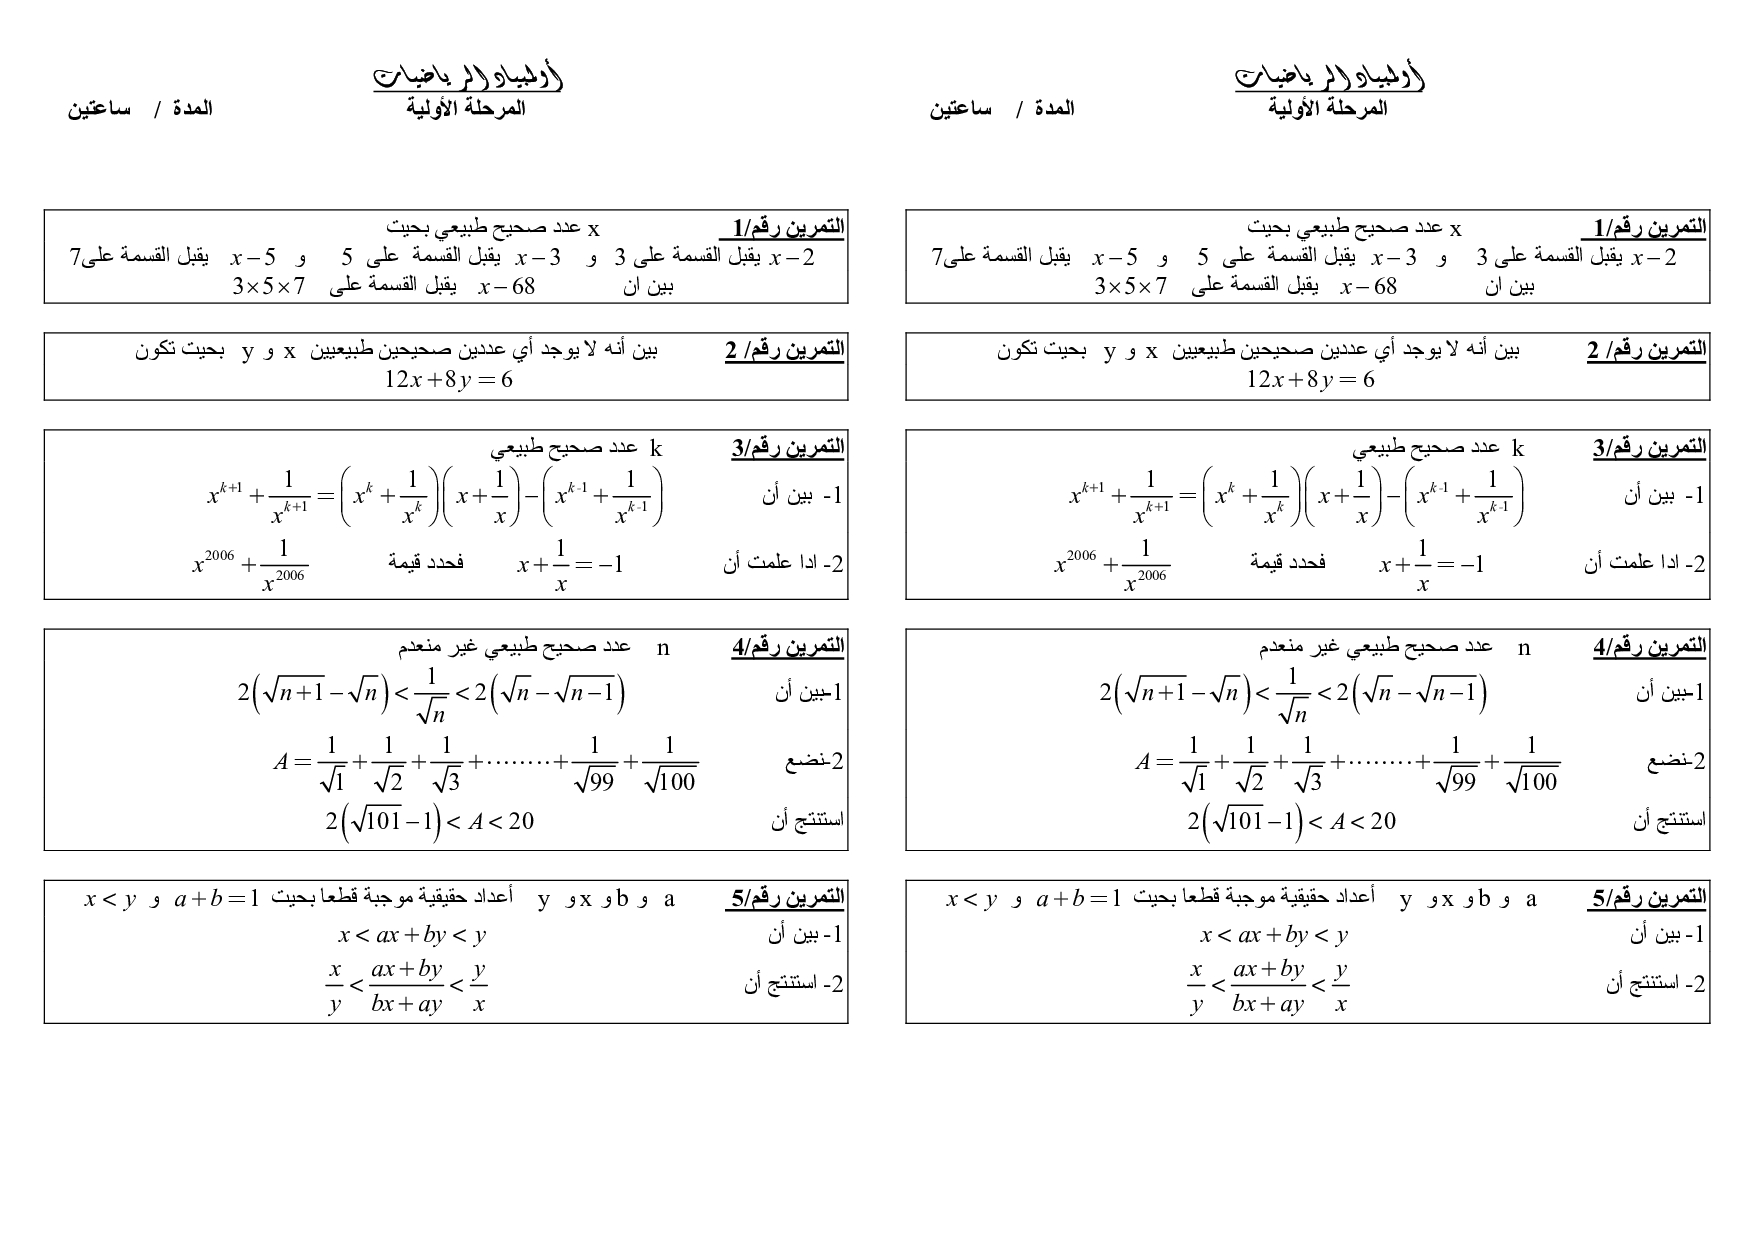 أولمبياد الرياضيات
المرحلة الأولية
المدة / ساعتين
التمرين رقم/1 x عدد صحيح طبيعي بحيت
x − 2 يقبل القسمة على 3 و x − 3 يقبل القسمة على 5 و x − 5 يقبل القسمة على7
بين ان x − 68 يقبل القسمة على 3×5×7
التمرين رقم/ 2 بين أنه لا يوجد أي عددين صحيحين طبيعيين x و y بحيت تكون
12x + 8y = 6
التمرين رقم/3 k عدد صحيح طبيعي
1- بين أن x^{k+1} + 1/x^{k+1} = (x^k + 1/x^k)(x + 1/x) − (x^{k-1} + 1/x^{k-1})
2- ادا علمت أن x + 1/x = −1 فحدد قيمة x^{2006} + 1/x^{2006}
التمرين رقم/4 n عدد صحيح طبيعي غير منعدم
1-بين أن 2(√(n+1) − √n) < 1/√n < 2(√n − √(n−1))
2-نضع A = 1/√1 + 1/√2 + 1/√3 + ········ + 1/√99 + 1/√100
استنتج أن 2(√101 − 1) < A < 20
التمرين رقم/5 a و b و x و y أعداد حقيقية موجبة قطعا بحيت a + b = 1 و x < y
1- بين أن x < ax + by < y
2- استنتج أن x/y < (ax + by)/(bx + ay) < y/x
أولمبياد الرياضيات
المرحلة الأولية
المدة / ساعتين
التمرين رقم/1 x عدد صحيح طبيعي بحيت
x − 2 يقبل القسمة على 3 و x − 3 يقبل القسمة على 5 و x − 5 يقبل القسمة على7
بين ان x − 68 يقبل القسمة على 3×5×7
التمرين رقم/ 2 بين أنه لا يوجد أي عددين صحيحين طبيعيين x و y بحيت تكون
12x + 8y = 6
التمرين رقم/3 k عدد صحيح طبيعي
1- بين أن x^{k+1} + 1/x^{k+1} = (x^k + 1/x^k)(x + 1/x) − (x^{k-1} + 1/x^{k-1})
2- ادا علمت أن x + 1/x = −1 فحدد قيمة x^{2006} + 1/x^{2006}
التمرين رقم/4 n عدد صحيح طبيعي غير منعدم
1-بين أن 2(√(n+1) − √n) < 1/√n < 2(√n − √(n−1))
2-نضع A = 1/√1 + 1/√2 + 1/√3 + ········ + 1/√99 + 1/√100
استنتج أن 2(√101 − 1) < A < 20
التمرين رقم/5 a و b و x و y أعداد حقيقية موجبة قطعا بحيت a + b = 1 و x < y
1- بين أن x < ax + by < y
2- استنتج أن x/y < (ax + by)/(bx + ay) < y/x